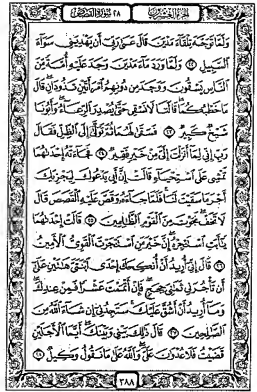 الجزء العشرون ٢٨ سورة القصص
وَلَمَّا تَوَجَّهَ تِلْقَآءَ مَدْيَنَ قَالَ عَسَىٰ رَبِّىٓ أَن يَهْدِيَنِى سَوَآءَ
ٱلسَّبِيلِ ٢٢ وَلَمَّا وَرَدَ مَآءَ مَدْيَنَ وَجَدَ عَلَيْهِ أُمَّةً مِّنَ
ٱلنَّاسِ يَسْقُونَ وَوَجَدَ مِن دُونِهِمُ ٱمْرَأَتَيْنِ تَذُودَانِ قَالَ
مَا خَطْبُكُمَا قَالَتَا لَا نَسْقِى حَتَّىٰ يُصْدِرَ ٱلرِّعَآءُ وَأَبُونَا
شَيْخٌ كَبِيرٌ ٢٣ فَسَقَىٰ لَهُمَا ثُمَّ تَوَلَّىٰٓ إِلَى ٱلظِّلِّ فَقَالَ
رَبِّ إِنِّى لِمَآ أَنزَلْتَ إِلَىَّ مِنْ خَيْرٍ فَقِيرٌ ٢٤ فَجَآءَتْهُ إِحْدَىٰهُمَا
تَمْشِى عَلَى ٱسْتِحْيَآءٍ قَالَتْ إِنَّ أَبِى يَدْعُوكَ لِيَجْزِيَكَ
أَجْرَ مَا سَقَيْتَ لَنَا فَلَمَّا جَآءَهُۥ وَقَصَّ عَلَيْهِ ٱلْقَصَصَ قَالَ
لَا تَخَفْ نَجَوْتَ مِنَ ٱلْقَوْمِ ٱلظَّٰلِمِينَ ٢٥ قَالَتْ إِحْدَىٰهُمَا
يَٰٓأَبَتِ ٱسْتَـْٔجِرْهُ إِنَّ خَيْرَ مَنِ ٱسْتَـْٔجَرْتَ ٱلْقَوِىُّ ٱلْأَمِينُ
٢٦ قَالَ إِنِّىٓ أُرِيدُ أَنْ أُنكِحَكَ إِحْدَى ٱبْنَتَىَّ هَٰتَيْنِ عَلَىٰٓ
أَن تَأْجُرَنِى ثَمَٰنِىَ حِجَجٍ فَإِنْ أَتْمَمْتَ عَشْرًا فَمِنْ عِندِكَ
وَمَآ أُرِيدُ أَنْ أَشُقَّ عَلَيْكَ سَتَجِدُنِىٓ إِن شَآءَ ٱللَّهُ مِنَ
ٱلصَّٰلِحِينَ ٢٧ قَالَ ذَٰلِكَ بَيْنِى وَبَيْنَكَ أَيَّمَا ٱلْأَجَلَيْنِ
قَضَيْتُ فَلَا عُدْوَٰنَ عَلَىَّ وَٱللَّهُ عَلَىٰ مَا نَقُولُ وَكِيلٌ ٢٨
٣٨٨